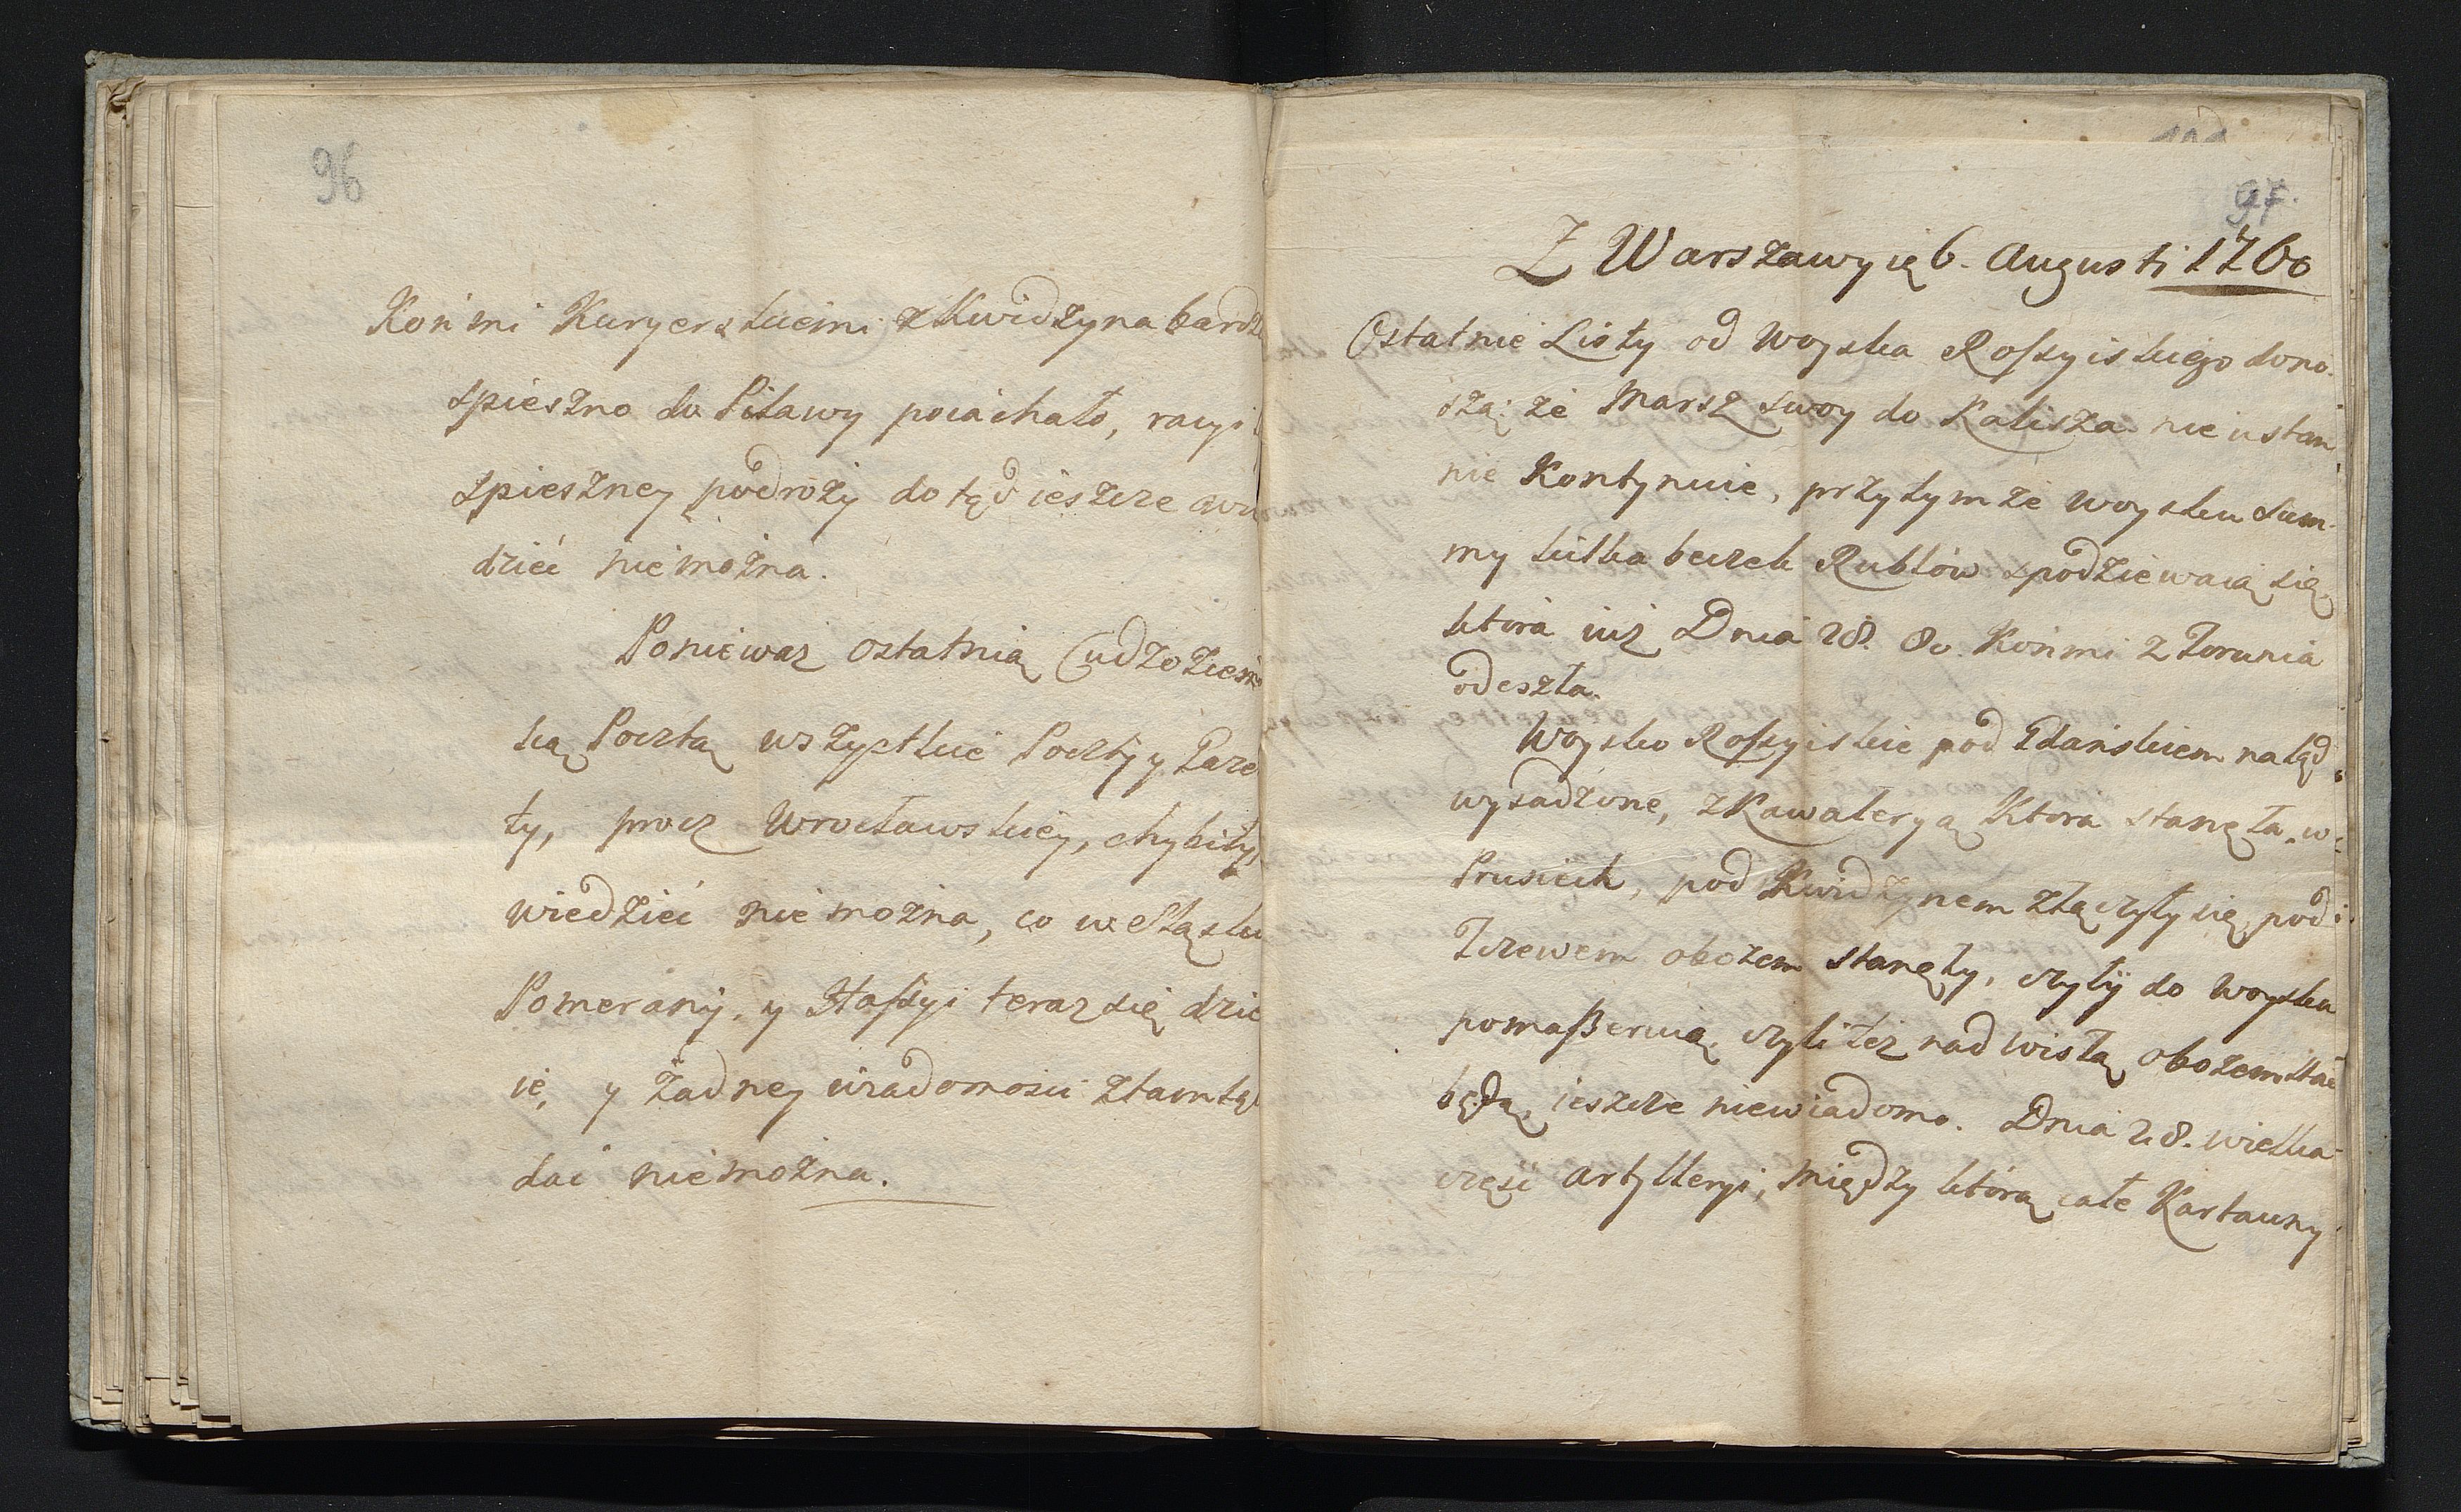 96
Końmi Kuryerskiemi z Kwidzyna bardz
spieszno do Pilawy poiachało, racyi
spieszney podroży dotąd ieszcze
dzieć nie można.
Poniewaz ostatnią Cudzoziem
ską Pocztą wszystkie Poczty y Gaze
ty, procz Wrocławskiey, chybiły,
wiedzieć nie można, co w Sląsku
Pomeranÿ, y Hassyi teraz się dzie
ie, y żadney wiadomosci ztamtąd
dać nie można.
97.
Z Warszawy 6. Augusti 1760
Ostatnie Listy od Woyska Rossyiskiego dono
szą: że Marsz swoy do Kalisza nie ustan
nie kontynuie, przytym że woysku Sum
my kilka beczek Rublów spodziewaią się,
ktora iuż Dnia 28. 80. Końmi z Torunia
odeszła.
Woysko Rossyiskie pod Gdańskiem na ląd
wysadzone, z Kawaleryą Ktora stanęła w
Prusiech, pod Kwidzynem złączyły się, pod
Tczewem obozem stanęły, czyly do Woyska
pomaßeruią, czyli też nad Wisłą obozem stać
będą, ieszcze niewiadomo. Dnia 28. wielka
częsć Artylleryi, między ktorą całe Kartauny